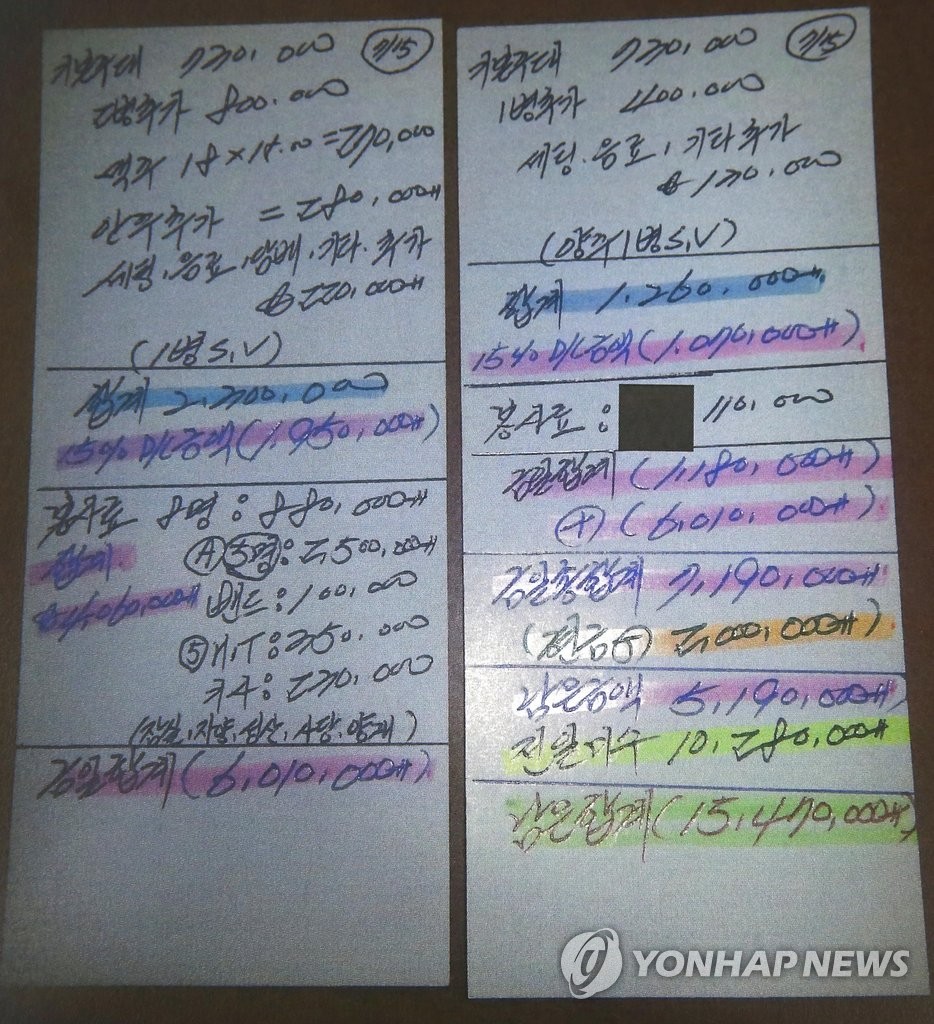 기본주대 730,000 7/15
2병추가 800,000
맥주 18 × 15.00 = 270,000
안주추가 = 280,000
세팅, 음료, 담배, 기타 추가
220,000
(1병 S,V)
합계 2,300,000
15% D/C 금액 (1,950,000)
봉사료 8명 : 880,000
합계 Ⓐ 5명 : 2,500,000
4,060,000 밴드 : 100,000
⑤ H,T : 350,000
키사 : 230,000
금일합계 (6,010,000)
기본주대 730,000 7/15
1병추가 400,000
세팅, 음료, 기타추가
130,000
(양주 1병 S,V)
합계 1,260,000
15% D/C 금액 (1,070,000)
봉사료 : 110,000
금일합계 (1,180,000)
⊕ (6,010,000)
금일총합계 7,190,000
(현금 ) 2,000,000
남은금액 5,190,000
전일미수 10,280,000
남은합계 (15,470,000)
YONHAP NEWS